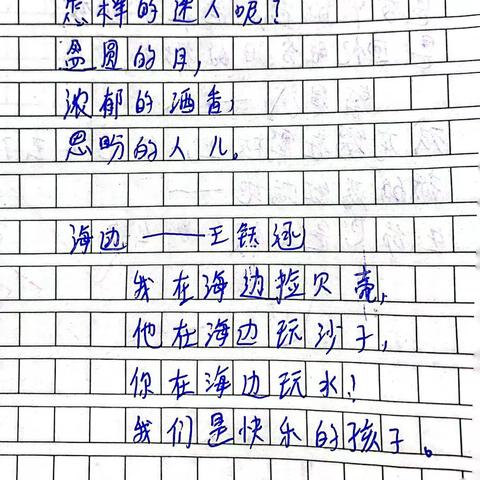 怎样的迷人呢？
盈圆的月，
浓郁的酒香，
思盼的人儿。
海边——王钰涵
我在海边捡贝壳，
他在海边玩沙子，
你在海边玩水！
我们是快乐的孩子。